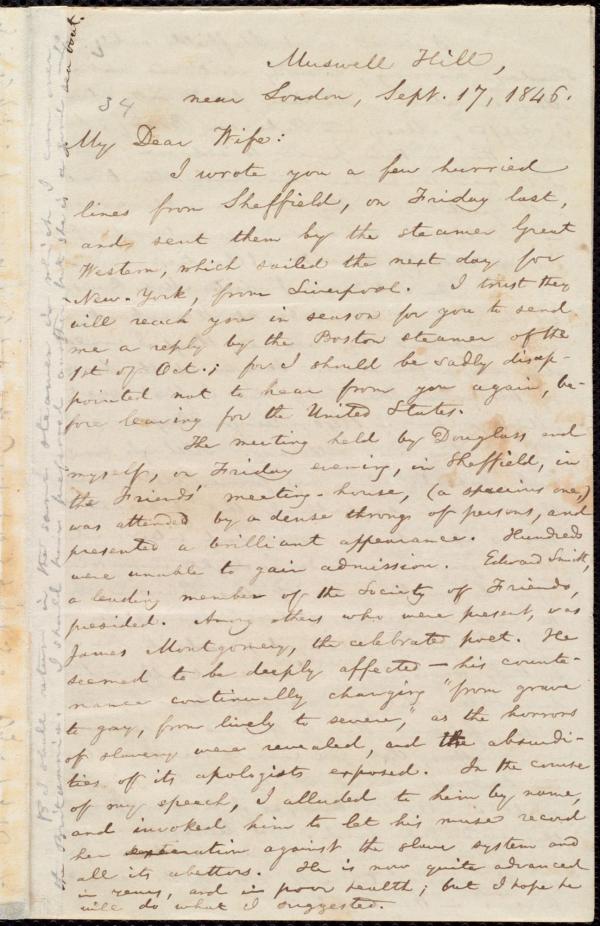 Muswell Hill,
near London, Sept. 17, 1846.
34
My Dear Wife:
I wrote you a few hurried
lines from Sheffield, on Friday last,
and sent them by the steamer Great
Western, which sailed the next day for
New-York, from Liverpool. I trust they
will reach you in season for you to send
me a reply by the Boston steamer of the
1st of Oct.; for I should be sadly disap-
pointed not to hear from you again, be-
fore leaving for the United States.
The meeting held by Douglass and
myself, on Friday evening, in Sheffield, in
the Friends' meeting-house, (a spacious one,)
was attended by a dense throng of persons, and
presented a brilliant appearance. Hundreds
were unable to gain admission. Edward Smith,
a leading member of the Society of Friends,
presided. Among others who were present, was
James Montgomery, the celebrate poet. He
seemed to be deeply affected — his counte-
nance continually changing "from grave
to gay, from lively to severe," as the horrors
of slavery were revealed, and the absurdi-
ties of its apologists exposed. In the course
of my speech, I alluded to him by name,
and invoked him to let his muse record
her execration against the slave system and
all its abettors. He is now quite advanced
in years, and in poor health; but I hope he
will do what I suggested.
I shall return in the same steamer in which I came over,
the Britannia. I should have preferred another, but she is a
sea boat.